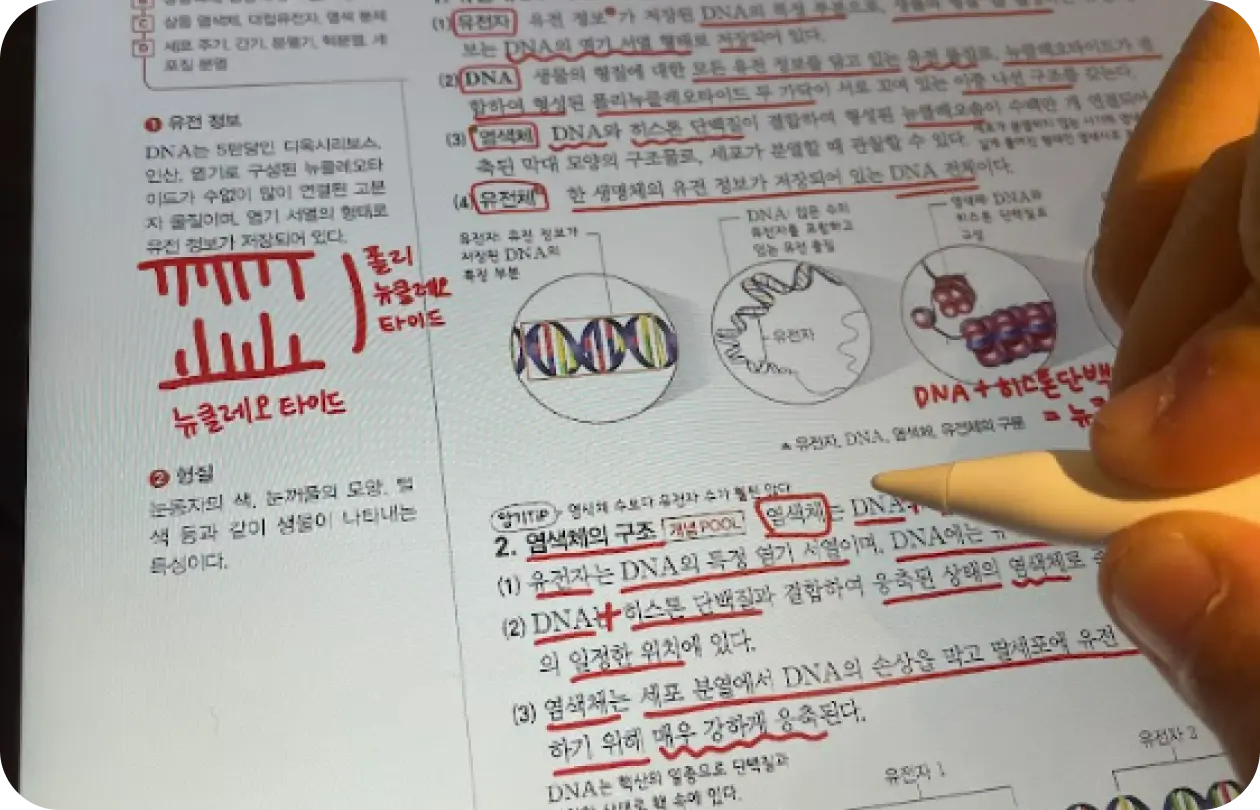 삼동 염색체, 대립유전자, 염색 분체
세포 주기, 간기, 분열기, 핵분열, 세
포질 분열
❶ 유전 정보
DNA는 5탄당인 디옥시리보스,
인산, 염기로 구성된 뉴클레오타
이드가 수없이 많이 연결된 고분
자 물질이며, 염기 서열의 형태로
유전 정보가 저장되어 있다.
폴리
뉴클레오
타이드
뉴클레오타이드
❷ 형질
눈동자의 색, 눈꺼풀의 모양, 털
색 등과 같이 생물이 나타내는
특성이다.
(1) 유전자 유전 정보❶가 저장된 DNA의 특정 부분으로, 생물의
보는 DNA의 염기 서열 형태로 저장되어 있다.
(2) DNA 생물의 형질에 대한 모든 유전 정보를 담고 있는 유전 물질로, 뉴클레오타이드가 결
합하여 형성된 폴리뉴클레오타이드 두 가닥이 서로 꼬여 있는 이중 나선 구조를 갖는다.
(3) 염색체 DNA와 히스톤 단백질이 결합하여 형성된 뉴클레오솜이 수백만 개 연결되어
축된 막대 모양의 구조물로, 세포가 분열할 때 관찰할 수 있다.
(4) 유전체 한 생명체의 유전 정보가 저장되어 있는 DNA 전체이다.
유전자: 유전 정보가
저장된 DNA의
특정 부분
DNA: 많은 수의
유전자를 포함하고
있는 유전 물질
유전자
염색체: DNA와
히스톤 단백질로
구성
DNA + 히스톤단백
= 뉴
▲ 유전자, DNA, 염색체, 유전체의 구분
암기TIP 염색체 수보다 유전자 수가 훨씬 많다
2. 염색체의 구조 개념POOL 염색체는 DNA+
(1) 유전자는 DNA의 특정 염기 서열이며, DNA에는
(2) DNA는+히스톤 단백질과 결합하여 응축된 상태의 염색체로
의 일정한 위치에 있다.
(3) 염색체는 세포 분열에서 DNA의 손상을 막고 딸세포에 유전
하기 위해 매우 강하게 응축된다.
DNA는 핵산의 일종으로 단백질과
상태로 핵 속에 있다.
유전자 1
유전자 2